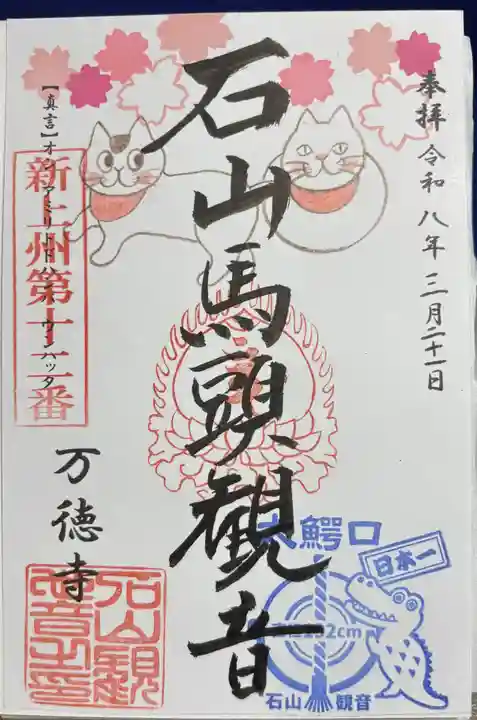 奉拝 令和八年三月二十一日
石山馬頭観音
【真言】オン アミリト ドハンバ ウンハッタ
新上州第十二番
万徳寺
石山観世音之印
大鰐口
日本一
石山観音